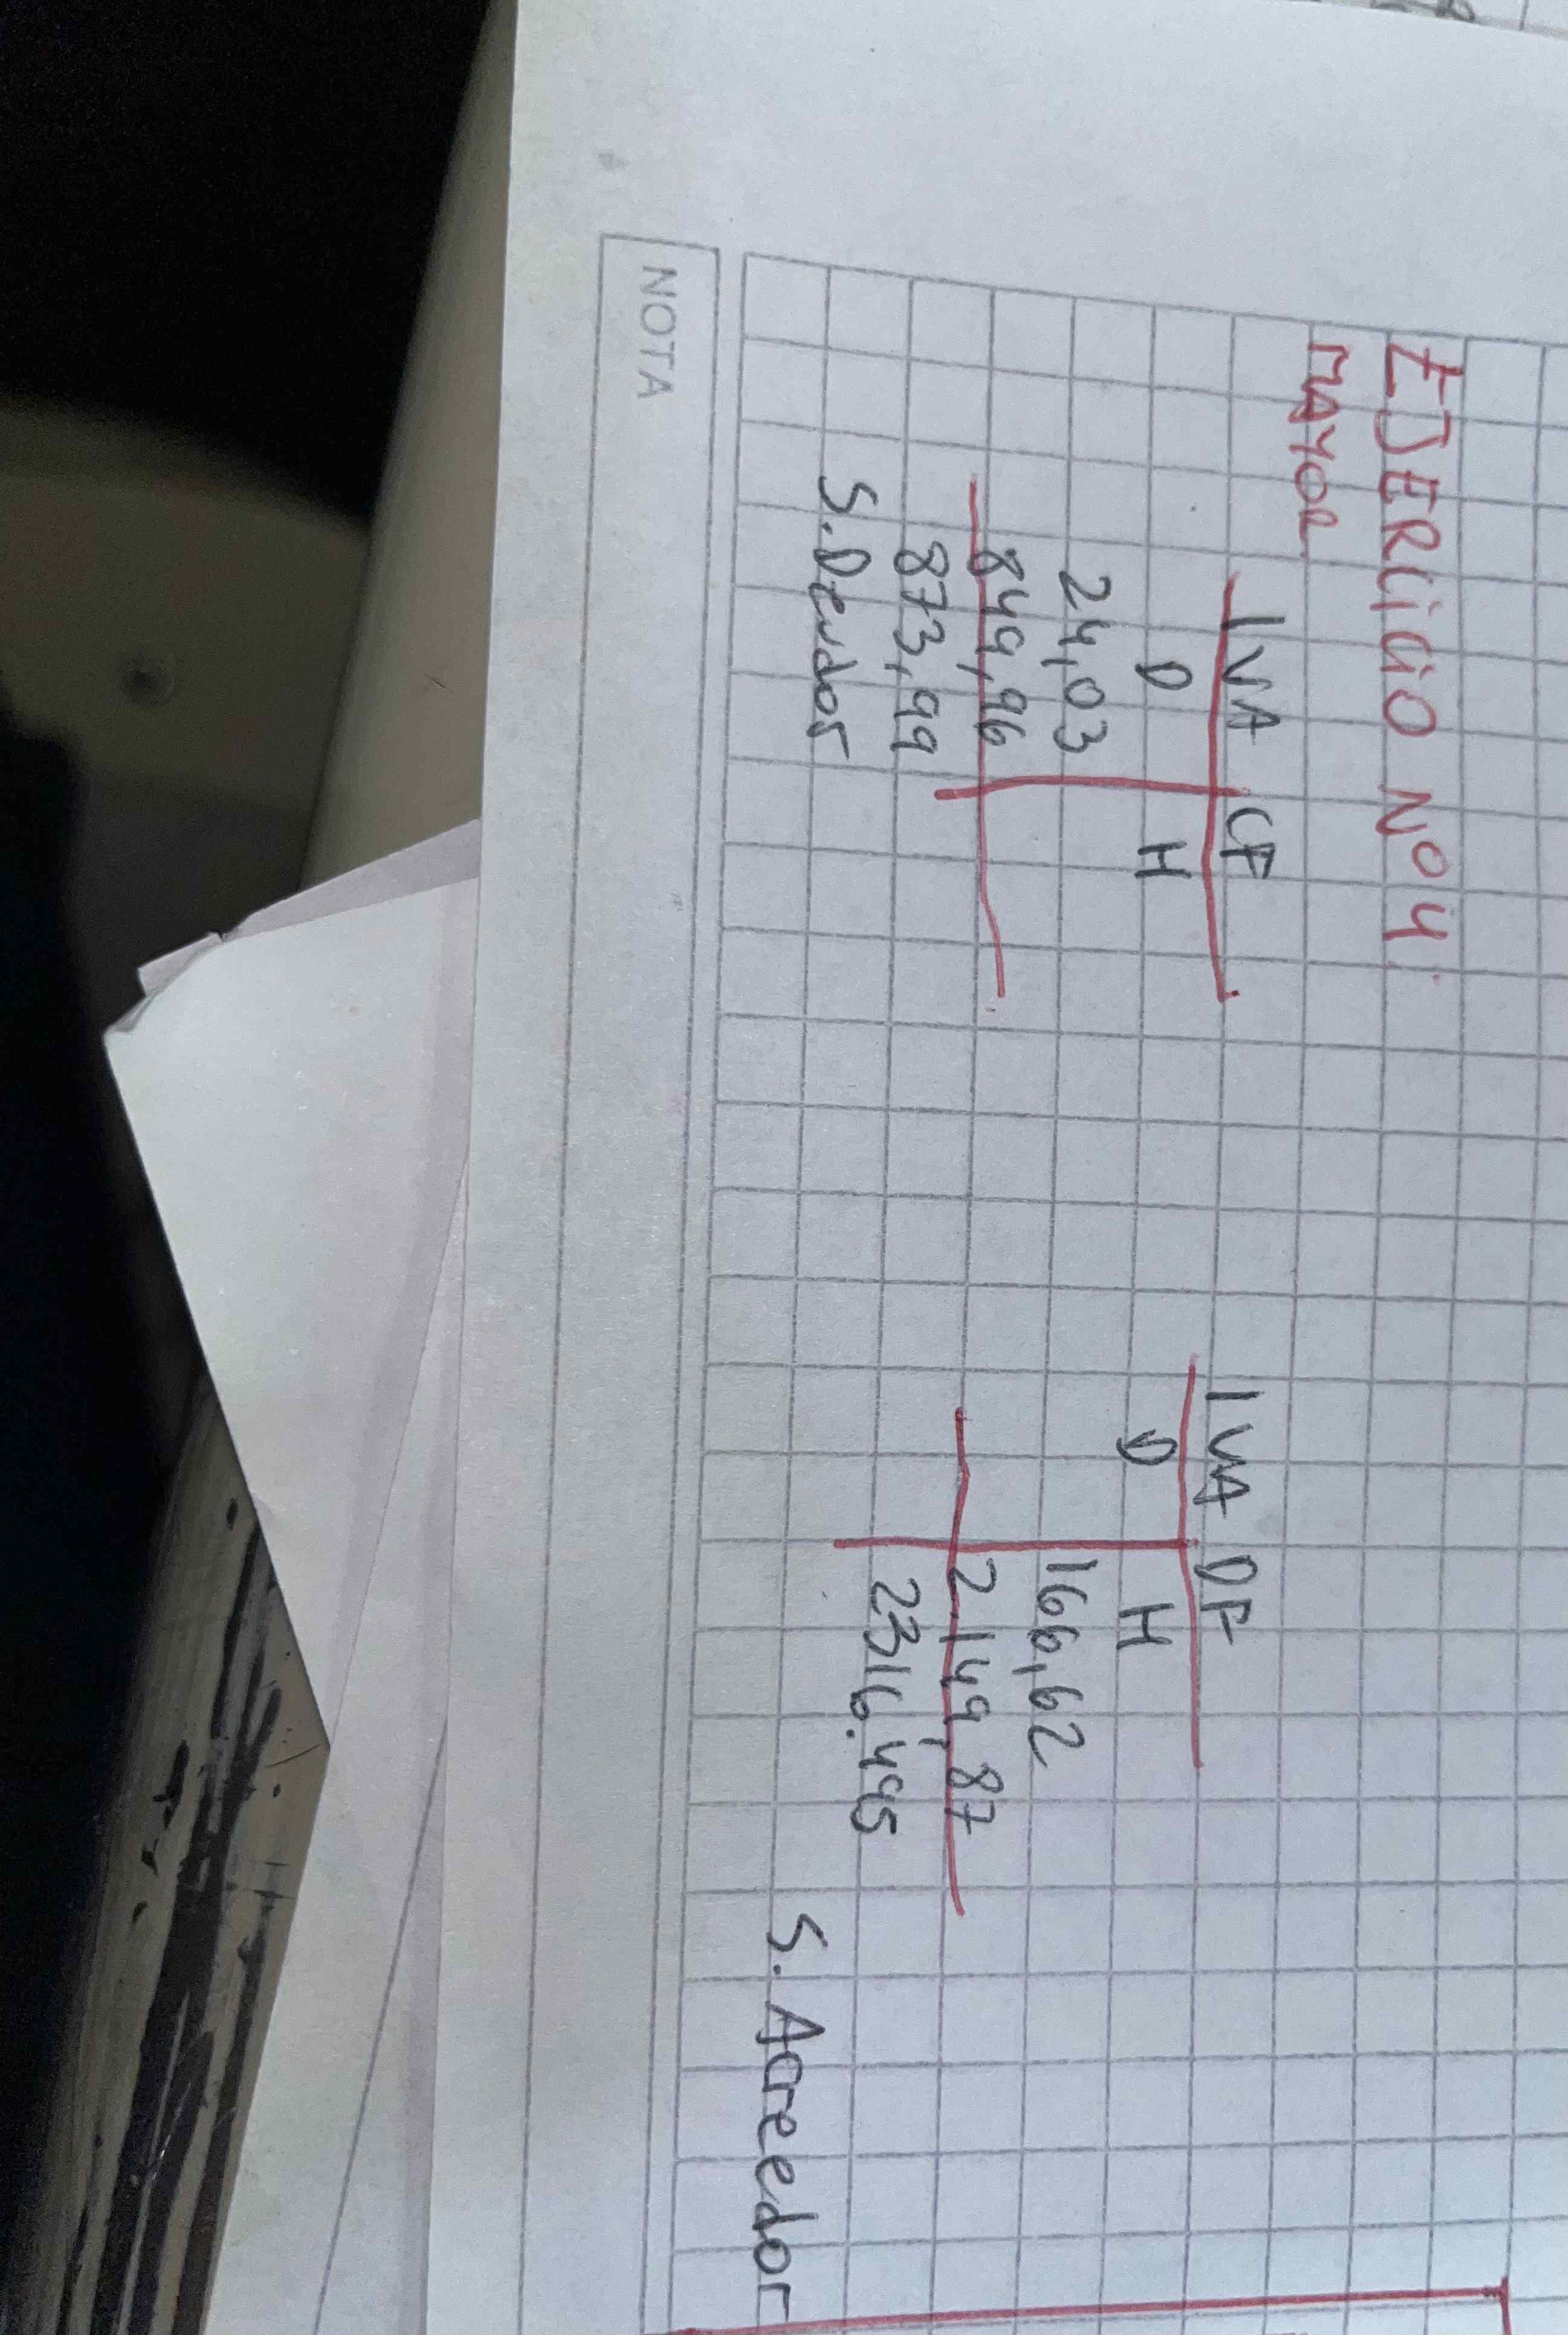 EJERCICIO Nº4
MAYOR
IVA CF
D H
24,03
849,96
873,99
S. Deudor
IVA DF
D H
166,62
2.149,87
2316.495
S. Acreedor
NOTA